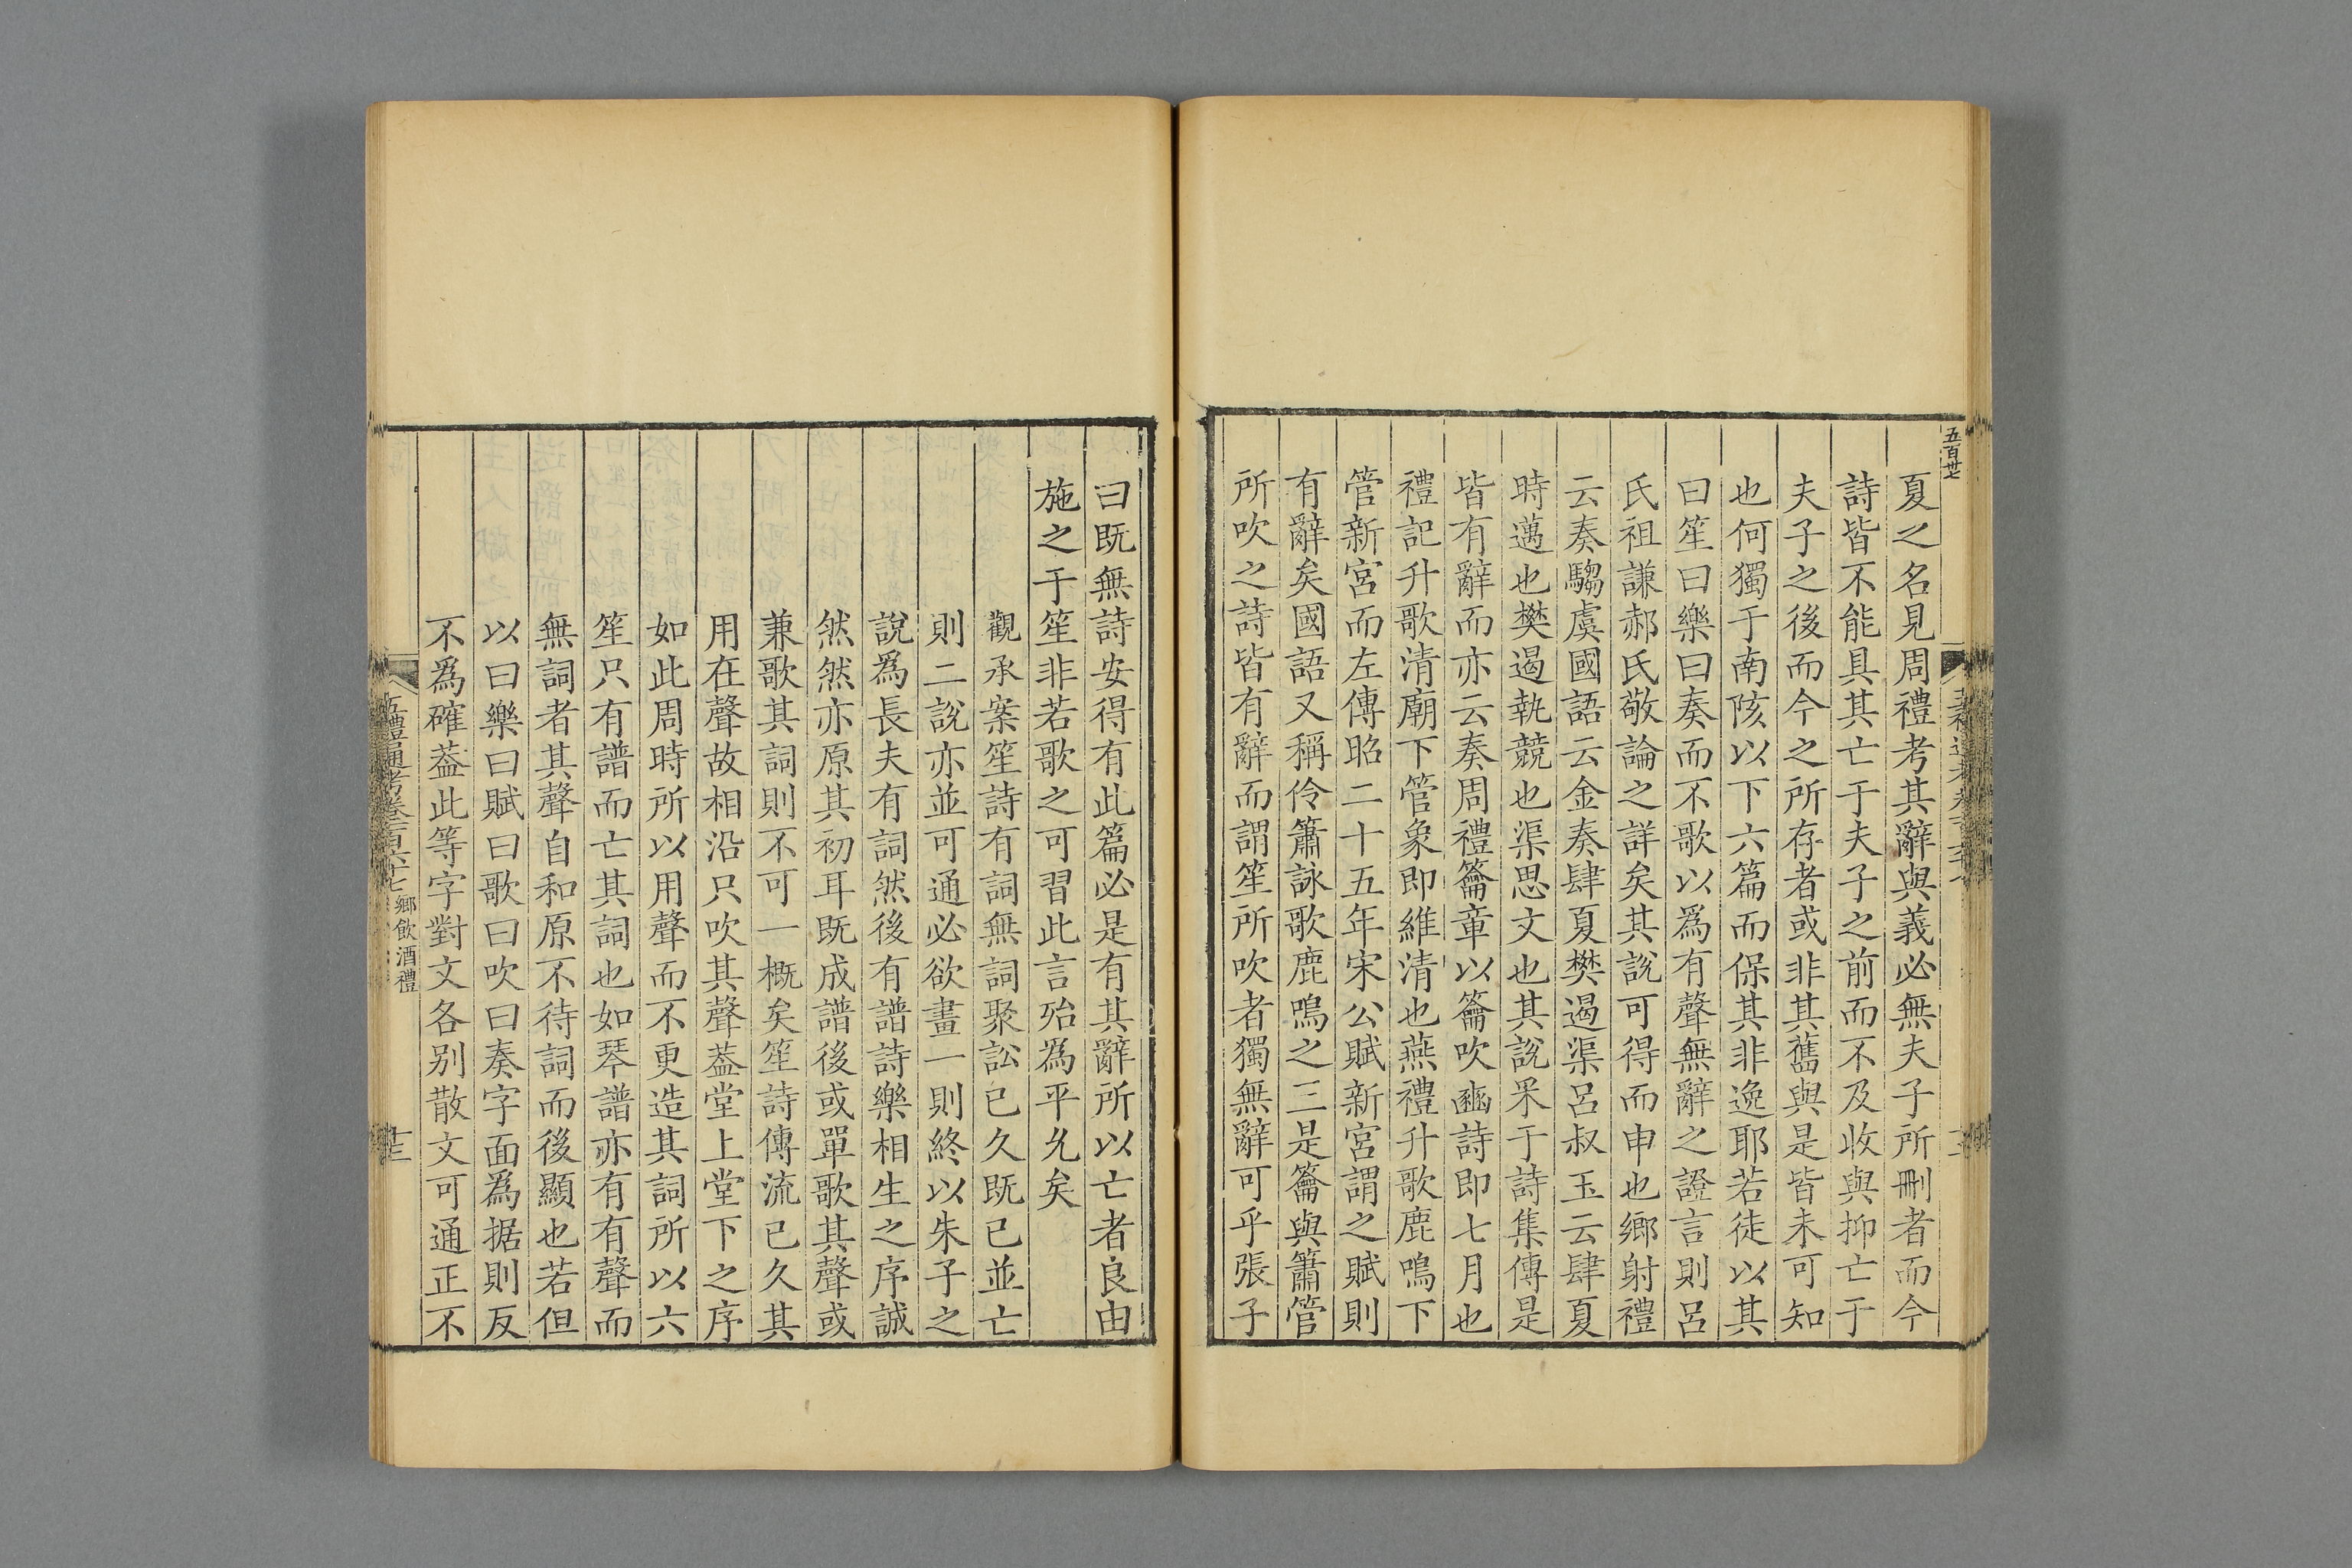 五百卅七
夏之名見周禮考其辭與義必無夫子所刪者而今
詩皆不能具其亡于夫子之前而不及收與抑亡于
夫子之後而今之所存者或非其舊與是皆未可知
也何獨于南陔以下六篇而保其非逸耶若徒以其
曰笙曰樂曰奏而不歌以爲有聲無辭之證言則呂
氏祖謙郝氏敬論之詳矣其說可得而申也鄉射禮
云奏騶虞國語云金奏肆夏樊遏渠呂叔玉云肆夏
時邁也樊遏執競也渠思文也其說采于詩集傳是
皆有辭而亦云奏周禮籥章以籥吹豳詩即七月也
禮記升歌清廟下管象即維清也燕禮升歌鹿鳴下
管新宮而左傳昭二十五年宋公賦新宮謂之賦則
有辭矣國語又稱伶簫詠歌鹿鳴之三是籥與簫管
所吹之詩皆有辭而謂笙所吹者獨無辭可乎張子
曰既無詩安得有此篇必是有其辭所以亡者良由
施之于笙非若歌之可習此言殆為平允矣
觀承案笙詩有詞無詞聚訟已久既已並亡
則二說亦並可通必欲畫一則終以朱子之
說爲長夫有詞然後有譜詩樂相生之序誠
然然亦原其初耳既成譜後或單歌其聲或
兼歌其詞則不可一概矣笙詩傳流已久其
用在聲故相沿只吹其聲葢堂上堂下之序
如此周時所以用聲而不更造其詞所以六
笙只有譜而亡其詞也如琴譜亦有有聲而
無詞者其聲自和原不待詞而後顯也若但
以曰樂曰賦曰歌曰吹曰奏字面爲据則反
不爲確葢此等字對文各别散文可通正不
五禮通考卷一百六十七 鄉飲酒禮